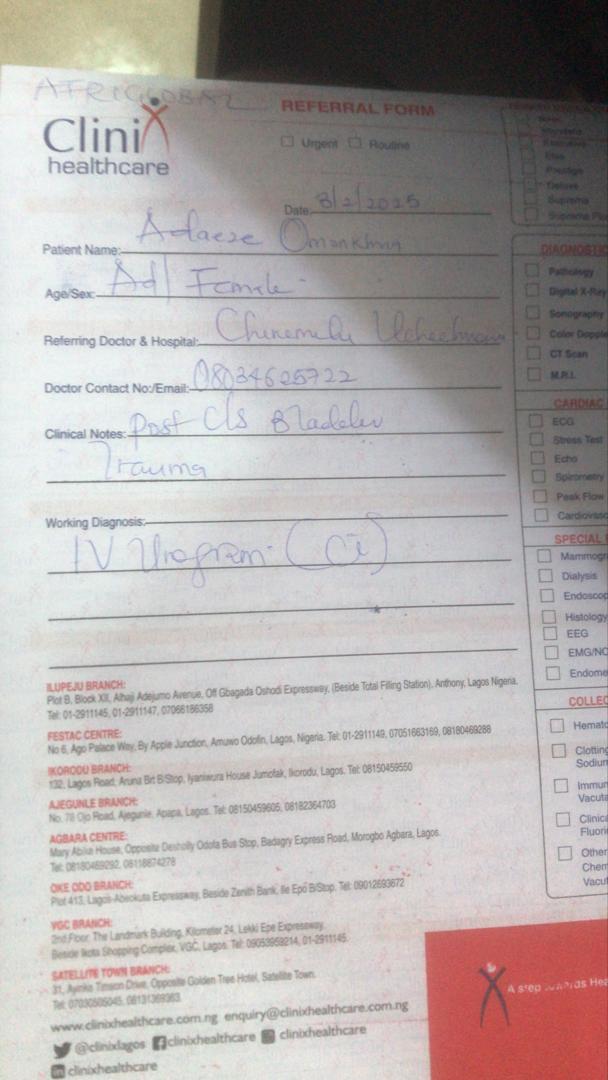 AFRIGLOBAL
Clinix
healthcare
REFERRAL FORM
Urgent Routine
Date: 8/2/2025
Patient Name: Adaeze
Age/Sex: Ad/ Female
Referring Doctor & Hospital:
Doctor Contact No:/Email: 08034625722
Clinical Notes: Post C/s Bladder
Trauma
Working Diagnosis:
IV Urogram (CT)
ILUPEJU BRANCH:
Plot B, Block XII, Alhaji Adejumo Avenue, Off Gbagada Oshodi Expressway, (Beside Total Filling Station), Anthony, Lagos Nigeria.
Tel: 01-2911145, 01-2911147, 07066186358
FESTAC CENTRE:
No 6, Ago Palace Way, By Apple Junction, Amuwo Odofin, Lagos, Nigeria. Tel: 01-2911149, 07051663169, 08180469288
IKORODU BRANCH:
132, Lagos Road, Aruna B/Stop, Iyaniwura House Jumofak, Ikorodu, Lagos. Tel: 08150459550
AJEGUNLE BRANCH:
No. 78 Ojo Road, Ajegunle, Apapa, Lagos. Tel: 08150459605, 08182364703
AGBARA CENTRE:
Mary Abike House, Opposite Odofa Bus Stop, Badagry Express Road, Morogbo Agbara, Lagos.
Tel: 08180469292, 08118674278
OKE ODO BRANCH:
Plot 413, Lagos-Abeokuta Expressway, Beside Zenith Bank, Ile Epo B/Stop. Tel: 09012693672
VGC BRANCH:
2nd Floor, The Landmark Building, Kilometer 24, Lekki Epe Expressway,
Beside Ikota Shopping Complex, VGC, Lagos. Tel: 09053959214, 01-2911145.
SATELLITE TOWN BRANCH:
31, Ayinke Timson Drive, Opposite Golden Tree Hotel, Satellite Town.
Tel: 07030505045, 08131369363
www.clinixhealthcare.com.ng enquiry@clinixhealthcare.com.ng
@clinixlagos clinixhealthcare clinixhealthcare
clinixhealthcare
Executive
Elite
Prestige
Deluxe
Suprema
Suprema Plu
DIAGNOSTIC
Pathology
Digital X-Ray
Sonography
Color Dopple
CT Scan
M.R.I.
CARDIAC
ECG
Stress Test
Echo
Spirometry
Peak Flow
Cardiovasc
SPECIAL
Mammogr
Dialysis
Endoscop
Histology
EEG
EMG/NC
Endome
COLLEC
Hemato
Clotting
Sodium
Immun
Vacuta
Clinica
Fluori
Other
Chem
Vacut
A step towards Hea